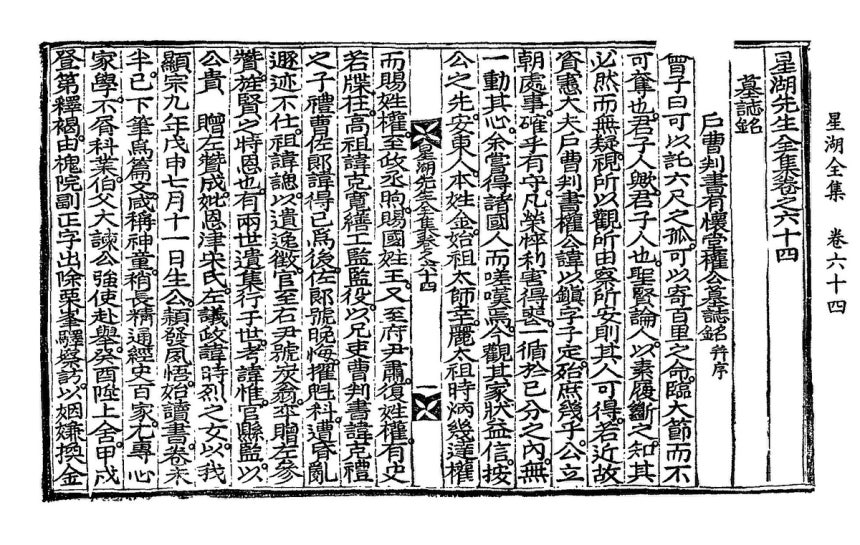 星湖全集 卷六十四
星湖先生全集卷之六十四
墓誌銘
戶曹判書有懷堂權公墓誌銘 幷序
曾子曰可以託六尺之孤可以寄百里之命臨大節而不
可奪也君子人歟君子人也聖賢論人以素履斷之知其
必然而無疑視所以觀所由察所安則其人可得若近故
資憲大夫戶曹判書權公諱以鎭字子定殆庶幾乎公立
朝處事確乎有守凡榮悴利害得喪一循於己分之內無
一動其心余嘗得諸國人而嗟嘆焉今觀其家狀益信按
公之先安東人本姓金始祖太師幸麗太祖時炳幾達權
星湖先生全集卷之六十四 一
而賜姓權至政丞昫賜國姓王又至府尹肅復姓權有史
若牒在高祖諱克寬繕工監監役以兄吏曹判書諱克禮
之子禮曹佐郞諱得己爲後佐郞號晩悔擢魁科遭昏亂
遯迹不仕祖諱諰以遺逸徵官至右尹號炭翁卒贈左參
贊旌賢之特恩也有兩世遺集行于世考諱惟官縣監以
公貴 贈左贊成妣恩津宋氏左議政諱時烈之女以我
顯宗九年戊申七月十一日生公穎發夙悟始讀書卷未
半已下筆爲篇文咸稱神童稍長精通經史百家尤專心
家學不屑科業伯父大諫公強使赴擧癸酉陞上舍甲戌
登第釋褐由槐院副正字出除栗峯驛察訪以姻嫌換金